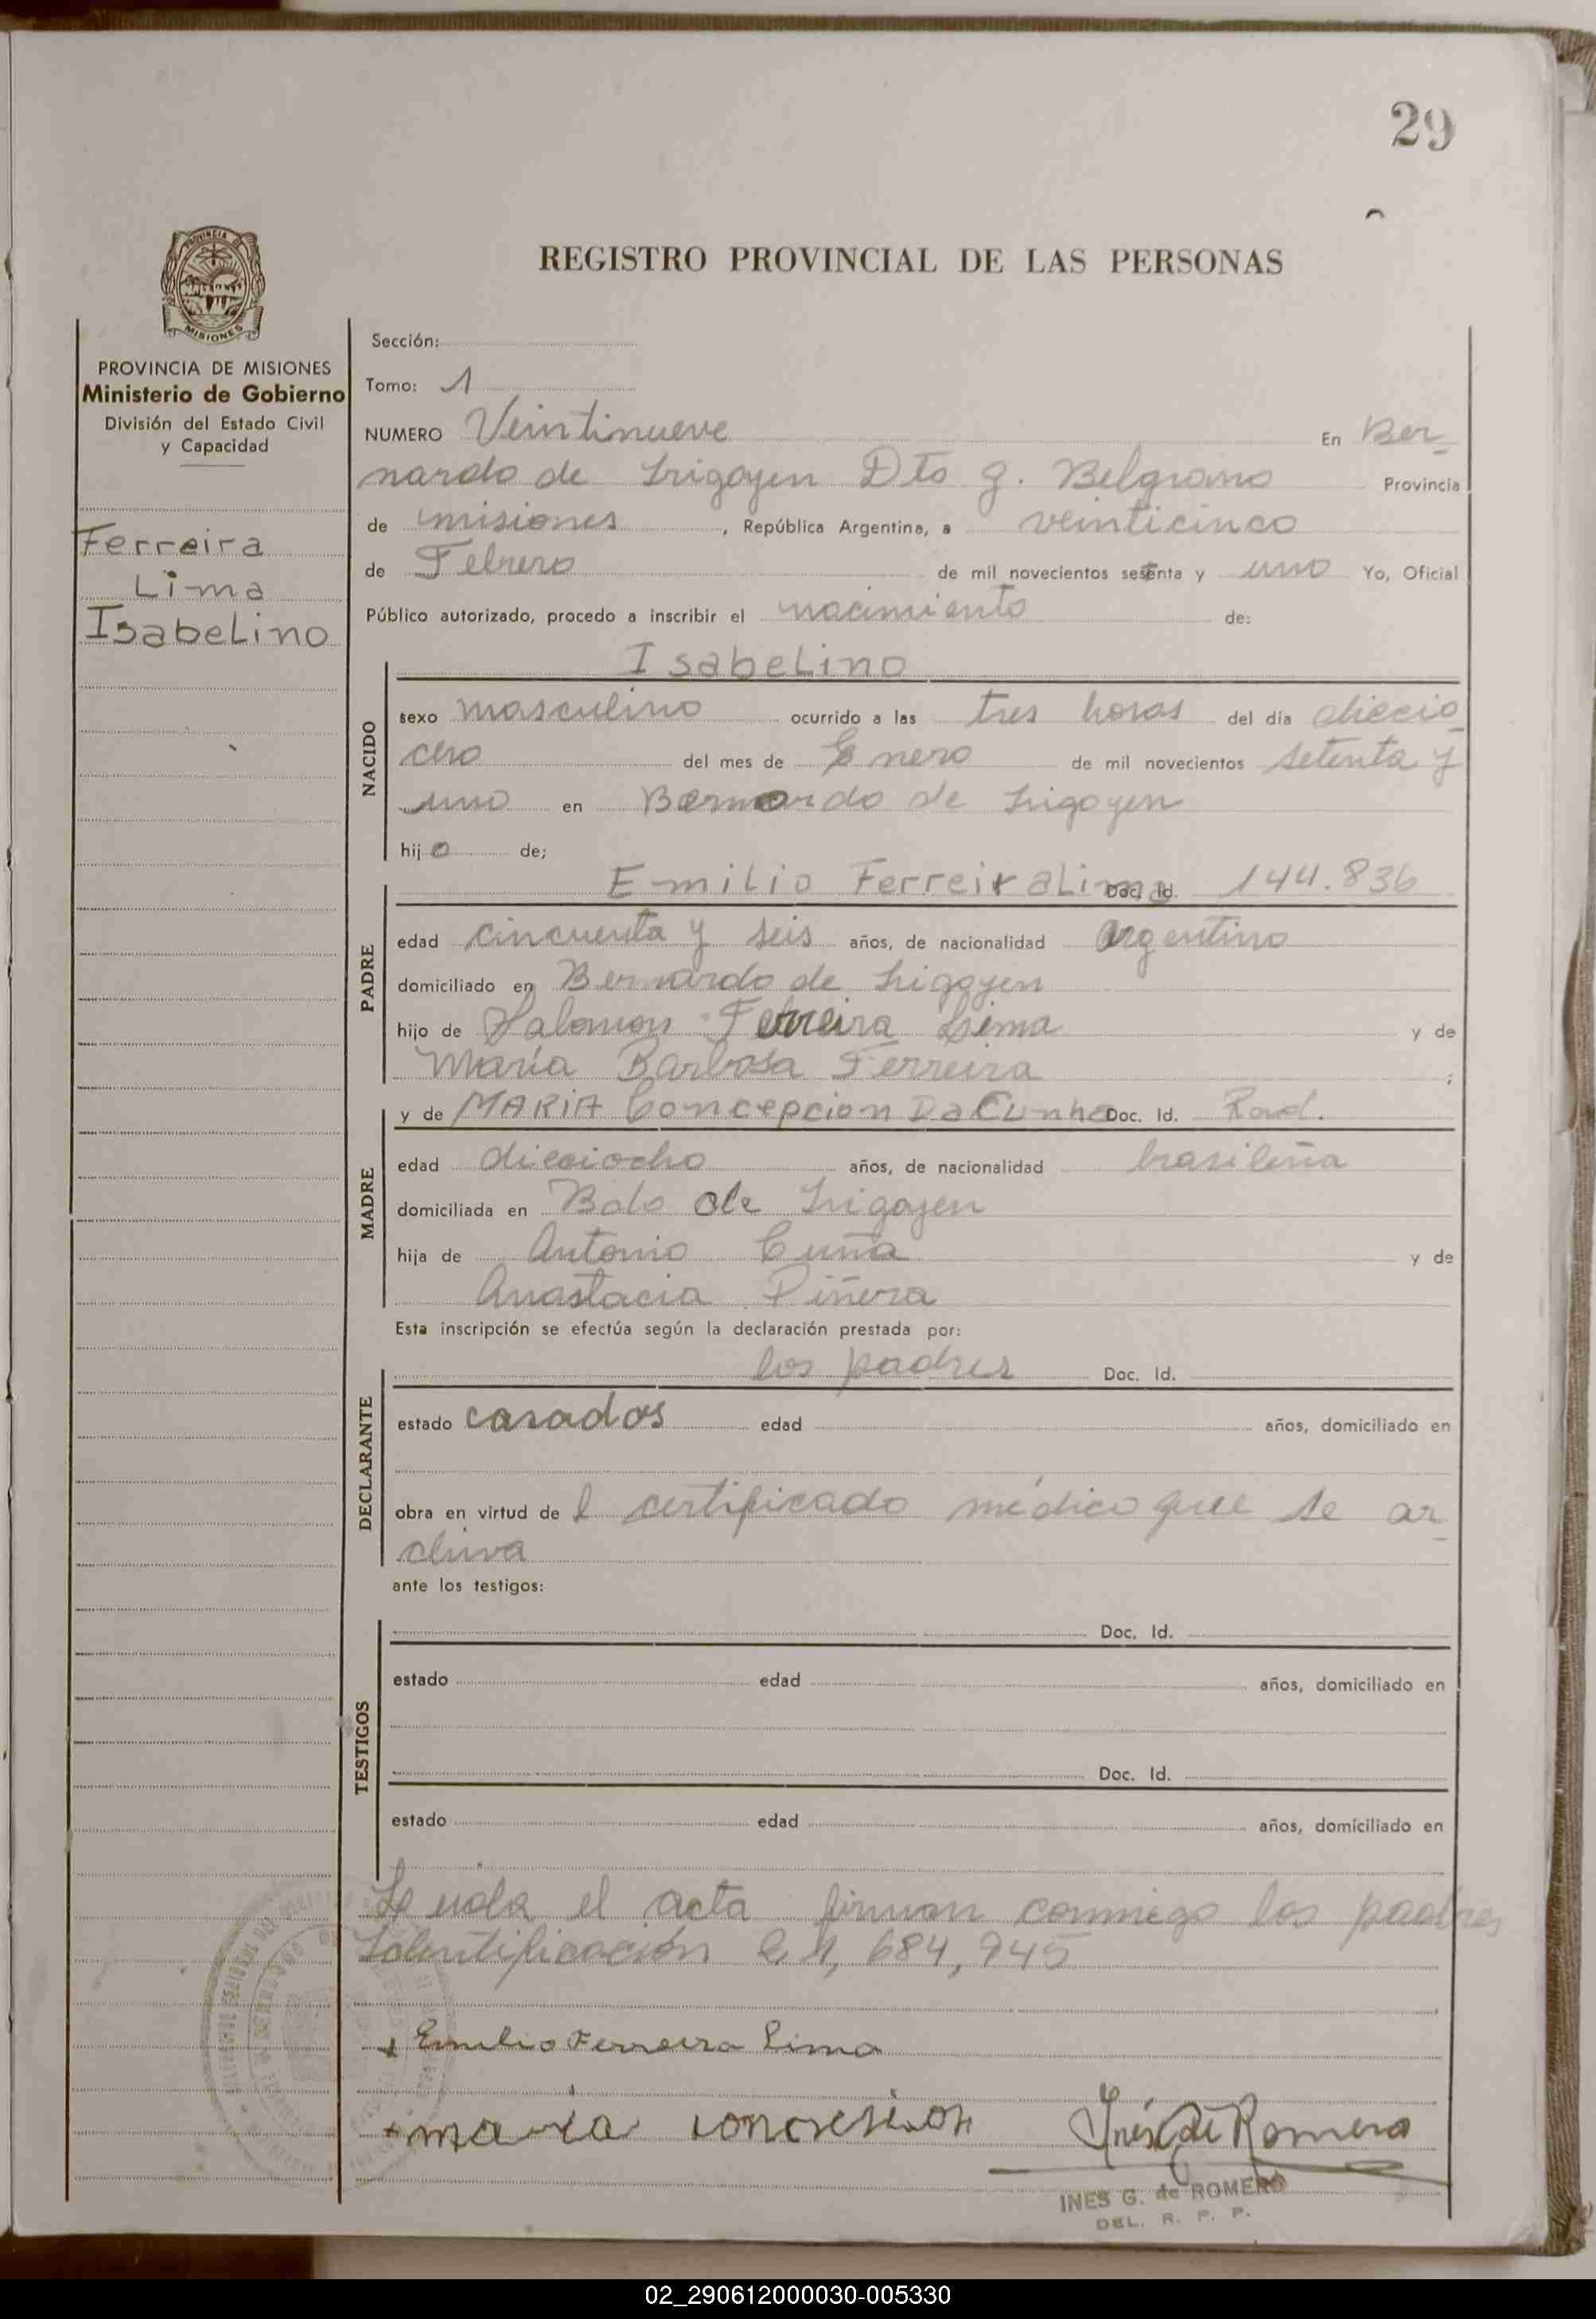 29
REGISTRO PROVINCIAL DE LAS PERSONAS
PROVINCIA DE
MISIONES
PROVINCIA DE MISIONES
Ministerio de Gobierno
División del Estado Civil
y Capacidad
Ferreira
Lima
Isabelino
Sección:
Tomo: 1
NUMERO Veintinueve En Ber
nardo de Irigoyen Dto g. Belgrano Provincia
de misiones, República Argentina, a veinticinco
de Febrero de mil novecientos setenta y uno Yo, Oficial
Público autorizado, procedo a inscribir el nacimiento de:
Isabelino
NACIDO
sexo masculino ocurrido a las tres horas del día diecio
cero del mes de Enero de mil novecientos setenta y
uno en Bernardo de Irigoyen
hijo de;
Emilio Ferreira Lima Doc. Id. 144.836
PADRE
edad cincuenta y seis años, de nacionalidad argentino
domiciliado en Bernardo de Irigoyen
hijo de Salomon Ferreira Lima y de
María Barbosa Ferreira ;
y de MARIA Concepcion Da Cunha Doc. Id. Rad.
MADRE
edad dieciocho años, de nacionalidad brasileña
domiciliada en Bdo de Irigoyen
hija de Antonio Cuña y de
Anastacia Piñera
Esta inscripción se efectúa según la declaración prestada por:
los padres Doc. Id.
DECLARANTE
estado casados edad años, domiciliado en
obra en virtud de l certificado médico que se ar
chiva
ante los testigos:
Doc. Id.
TESTIGOS
estado edad años, domiciliado en
Doc. Id.
estado edad años, domiciliado en
el acta firman conmigo los padres
Identificación 684,945
Emilio Ferreira Lima
maria
Inés G de Romero
INES G. de ROMERO
DEL. R. P. P.
02_290612000030-005330